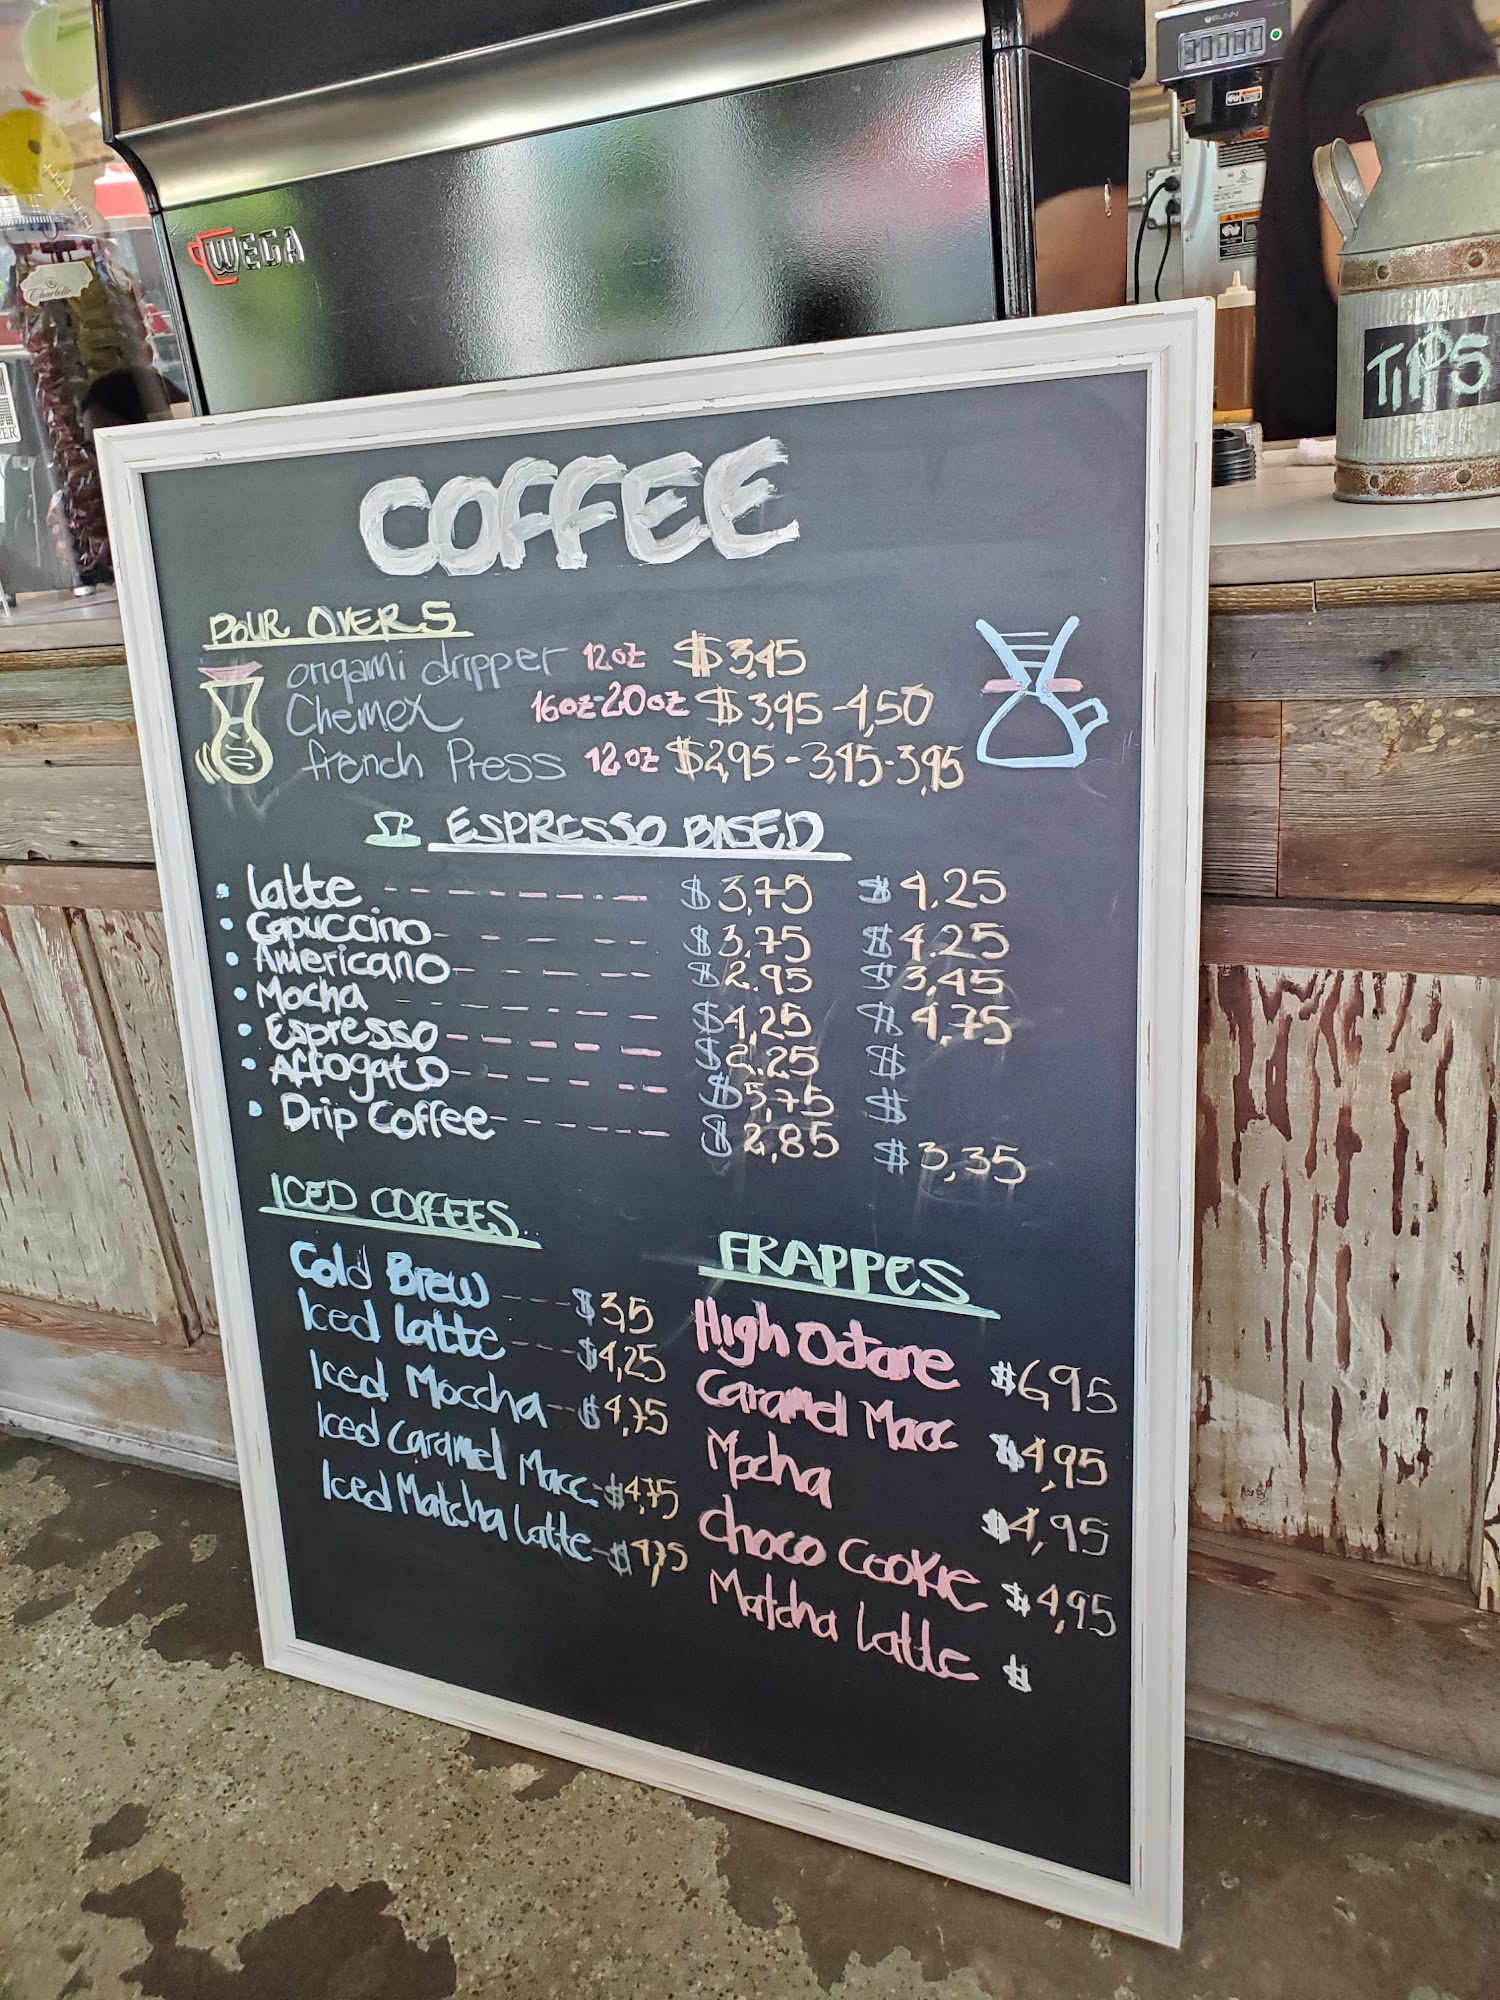 BUNN
WEGA
Charlotte
TIPS
COFFEE
POUR OVERS
origami dripper 12oz $3,45
Chemex 16oz-20oz $3,95-4,50
french Press 12oz $2,95-3,45-3,95
ESPRESSO BASED
Latte $3,75 $4.25
Capuccino $3,75 $4.25
Americano $2.95 $3,45
Mocha $4,25 $4,75
Espresso $2.25 $
Affogato $5,75 $
Drip Coffee $2,85 $3,35
ICED COFFEES
Cold Brew $3,5
Iced Latte $4,25
Iced Moccha $4,75
Iced Caramel Macc $4,75
Iced Matcha Latte $4,75
FRAPPES
High Octane $6,95
Caramel Macc $4,95
Mocha $4,95
Choco Cookie $4,95
Matcha Latte $